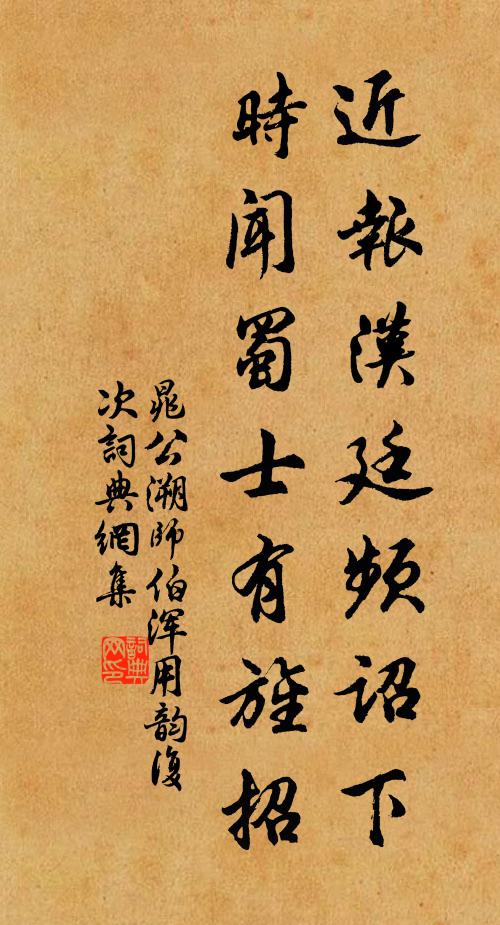 近報漢廷頻詔下
時聞蜀士有旌招
晁公溯師伯渾用韵復
次詞典網集
詞典網印